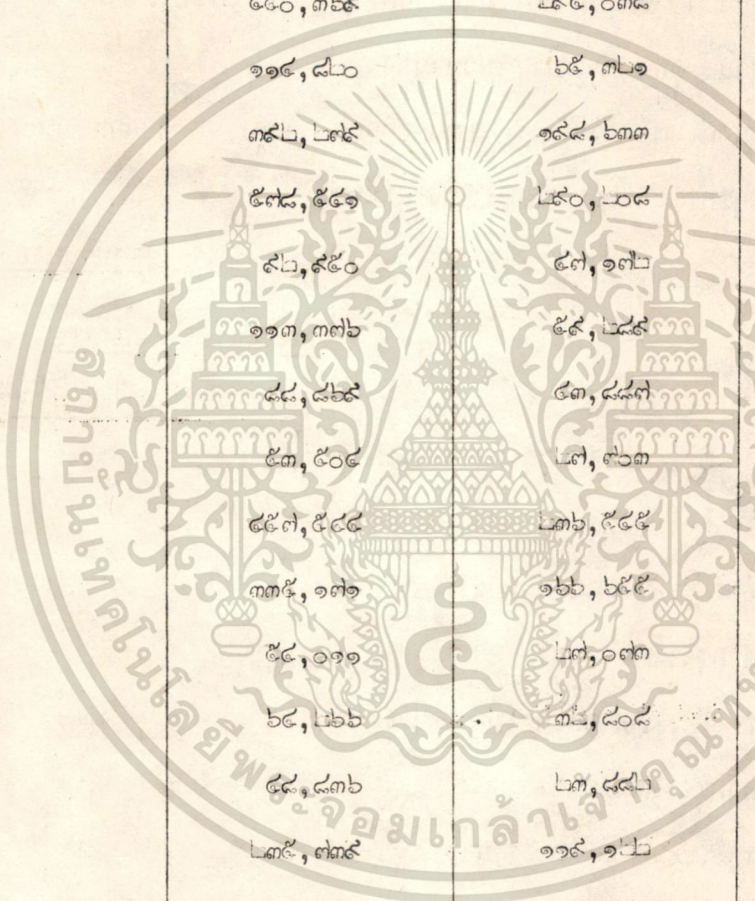 ๑๑๔,๘๒๐ ๖๕,๓๒๑
๓๙๒,๒๗๙ ๑๙๘,๖๓๓
๕๗๘,๕๔๑ ๒๙๐,๒๐๘
๙๒,๙๕๐ ๔๗,๑๗๒
๑๑๓,๓๗๖ ๕๙,๒๘๙
๘๘,๘๖๙ ๔๓,๘๘๗
๕๓,๕๐๔ ๒๗,๗๐๓
๔๕๗,๕๔๔ ๒๓๖,๕๔๕
๓๓๕,๑๗๑ ๑๖๖,๖๕๕
๕๔,๐๑๑ ๒๗,๐๗๓
๖๔,๒๖๖ ๓๒,๘๐๘
๔๘,๘๓๖ ๒๓,๘๘๒
๒๓๕,๗๓๙ ๑๑๙,๑๒๒
สถาบันเทคโนโลยีพระจอมเกล้าเจ้าคุณ